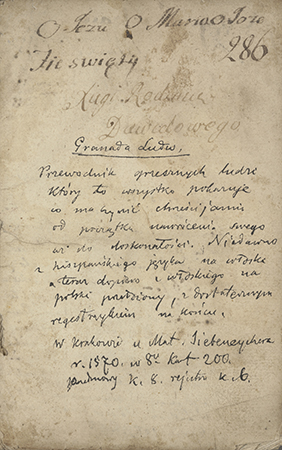 O Jezu O Maria O Joze
fie święty 286
Sługi Rodzaiu
Dawidowego
Granada Ludw.
Przewodnik grzesznych ludzi
który to wszystko pokazuje
co ma czynić chrześcijanin
od początku nawrócenia swego
aż do doskonałości. Niedawno
z hiszpańskiego języka na włoskie
a teraz dopiero z włoskiego na
polski przełożony, z dostatecznym
regestrzykiem na końcu.
W Krakowie u Mat. Siebeneychera
r. 1570. w 8ce kart 200.
przedmowy k. 8. rejestru k. 6.